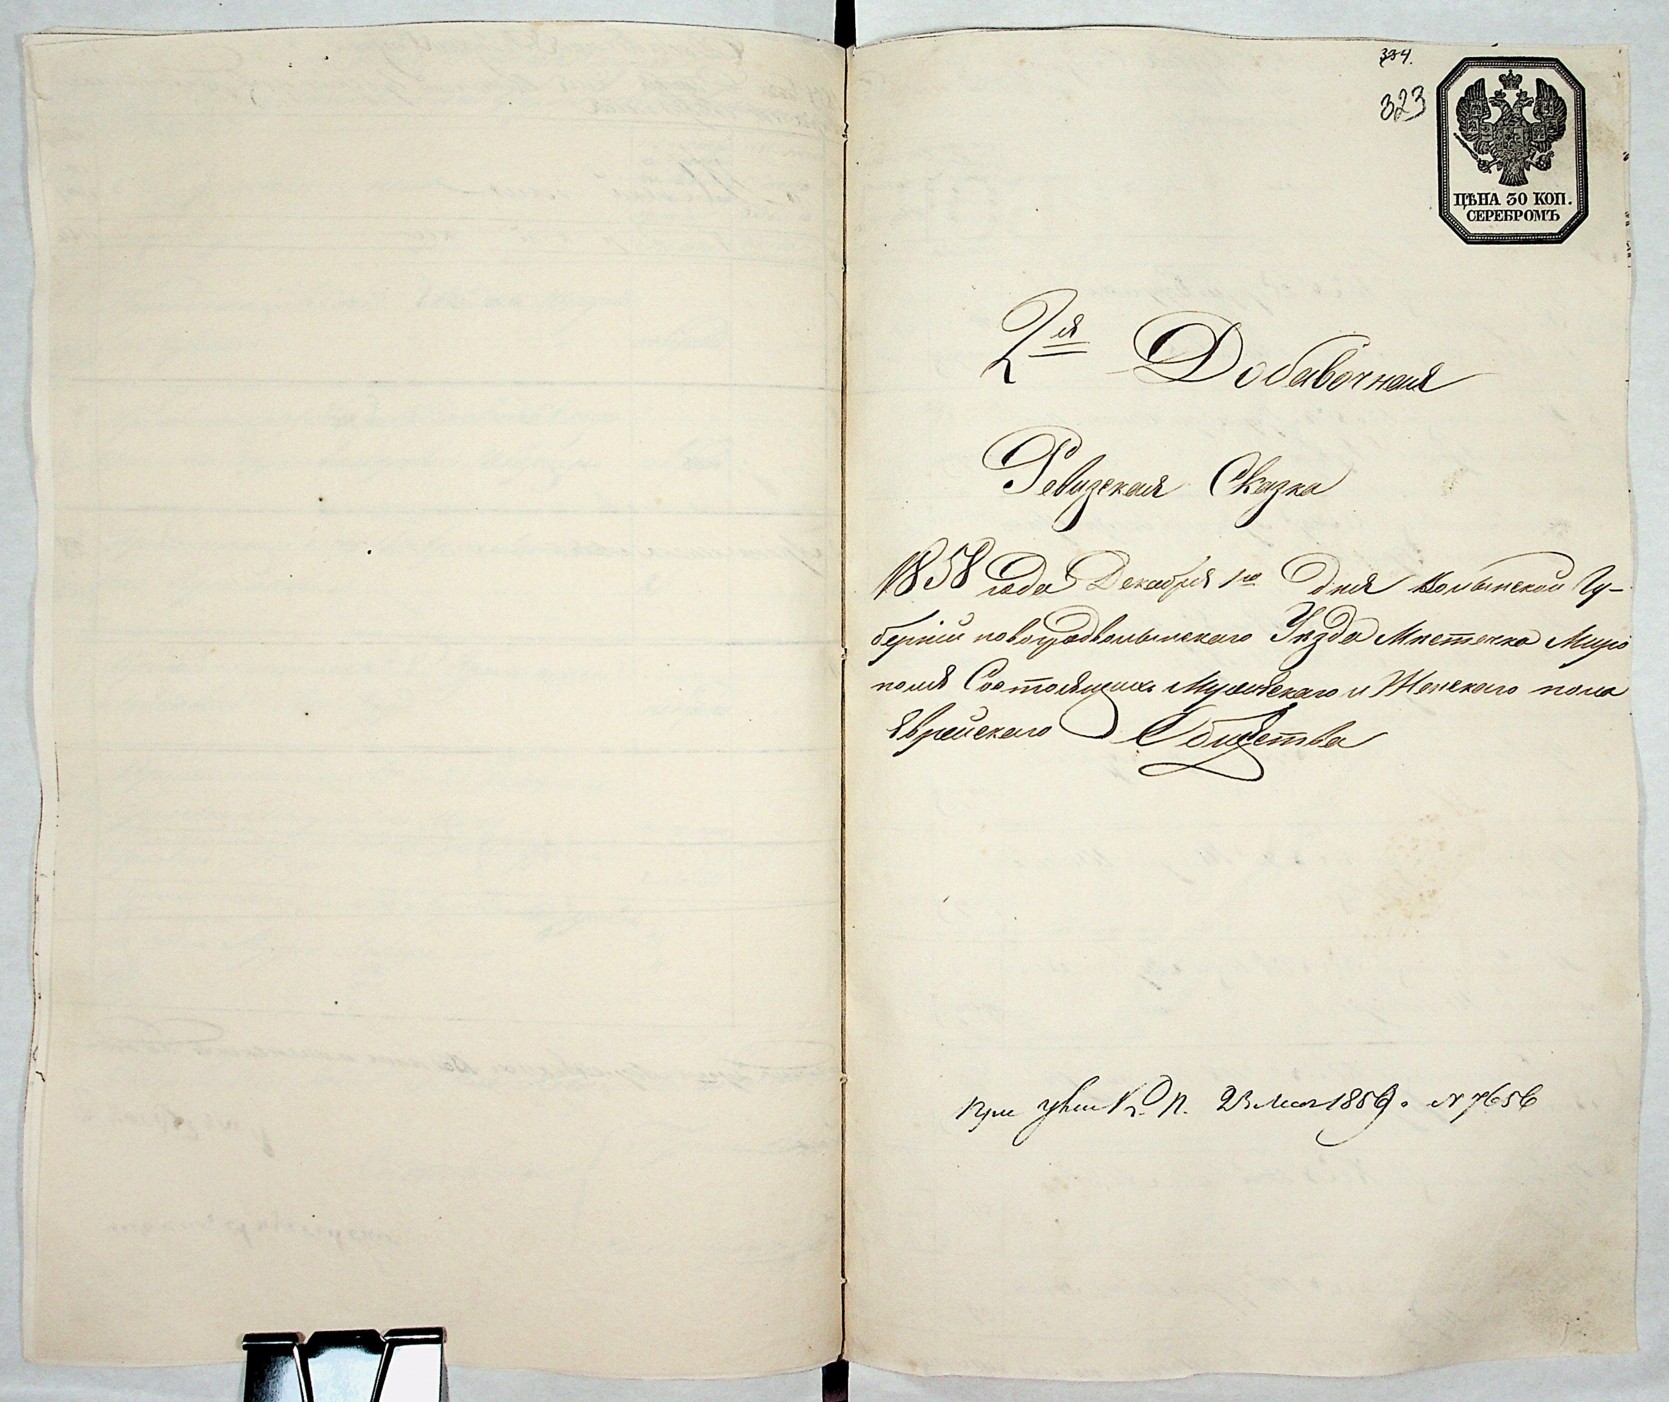 334.
323
ЦѢНА 30 КОП.
СЕРЕБРОМЪ
2я Добавочная
Ревизская Сказка
1858 года Декабря 1го дня Волынской Гу-
берніи новоградволынскаго Уѣзда Мѣстечка Миро
поля Состоящихъ Мужескаго и Женскаго пола
Еврейскаго Общества
При К. П. 23 1859 № 7656